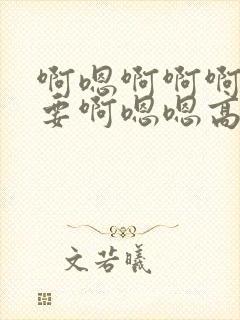 啊嗯啊啊啊
要啊嗯嗯高
文若曦